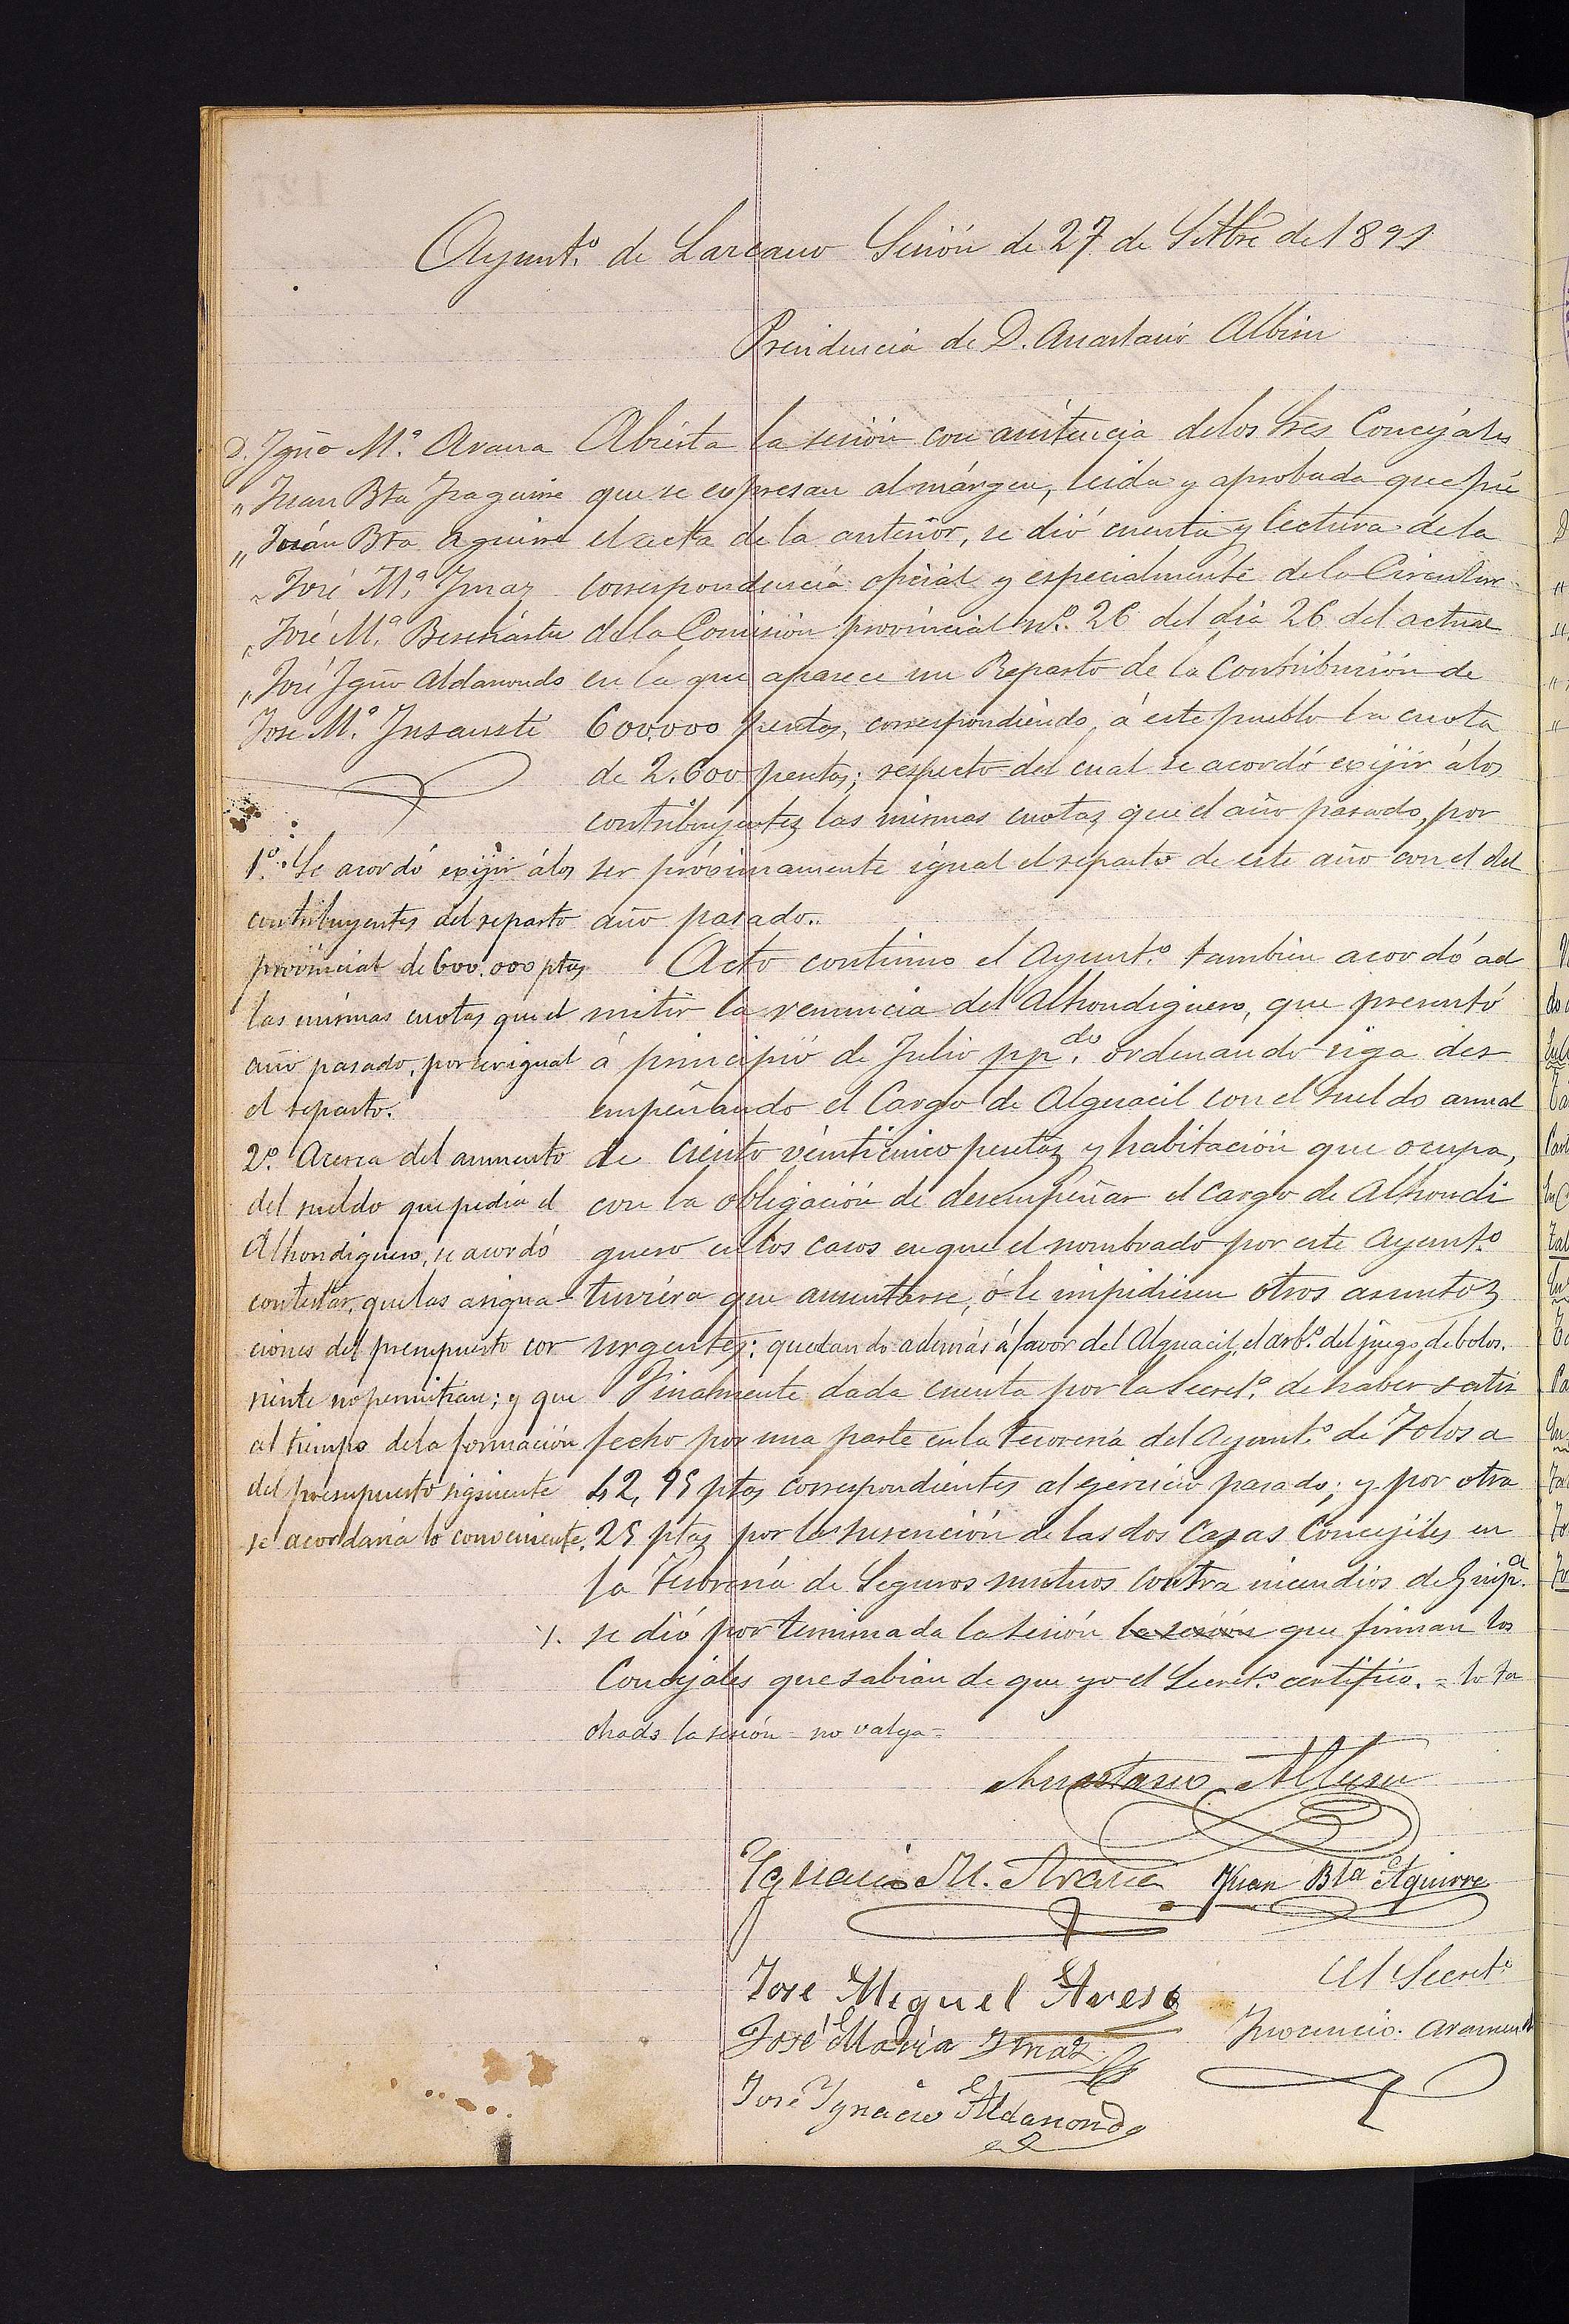 Ayunt.º de Lazcano Sesión de 27 de Setbre de 1891
Presidencia de D. Anastasio Albisu
D. Igño M.ª Arana
„ Juan Bta Izaguirre
„ Juán Bta Aguirre
„ José M.ª Ymaz
„ José M.ª Beseñártu
„ José Igño Aldanondo
José M.ª Insausti
1.º Se acordó exijir álos
contribuyentes del reparto
provincial de 600.000 ptas
las mismas cuotas que el
año pasado, por ser igual
el reparto.
2.º Acerca del aumento
del sueldo que pedía el
Alhondiguero, se acordó
contestar, que las asigna-
ciones del presupuesto cor
riente no permitían; y que
al tiempo dela formación
del presupuesto siguiente
se acordaría lo conveniente.
Abierta la sesión con asistencia delos Sres Concejáles
que se expresan al márgen, leida y aprobada que fué
el acta de la anterior, se dió cuenta y lectura dela
correspondencia oficial y especialmente dela Circular
dela Comisión provincial n.º 26 del día 26 del actual
en la que aparece un Reparto de la Contribución de
600.000 pesetas, correspondiendo, á este pueblo la cuota
de 2.600 pesetas; respecto del cual se acordó exijir álos
contribuyentes las mismas cuotas que el año pasado, por
ser próximamente igual el reparto de este año con el del
año pasado..
Acto continuo el Ayunt.º tambien acordó ad
mitir la renuncia del Alhondiguero, que presentó
á principio de Julio pp.do ordenando siga des
empeñando el Cargo de Alguacil con el sueldo anual
de ciento veinticinco pesetas y habitación que ocupa,
con la obligación de desempeñar el cargo de Alhondi
guero en los casos en que el nombrado por este Ayunt.º
tuviéra que ausentarse, ó le impidiesen otros asuntos
urgentes: quedando además á favor del Alguacil, el arb.º del juego de bolos.
Finalmente dada cuenta por la Secret.ª de haber satis
fecho por una parte en la Tesorería del Ayunt.º de Tolosa
42,95 ptas correspondientes al ejercicio pasado; y por otra
25 ptas por la de las dos Casas Concejiles en
la Tesorería de Seguros mutuos contra incendios de Guip.a
·/. se dió por terminada la sesión la sesión que firman los
Concejáles que sabian de que yo el Secret.º certifico. = lo ta
chado la sesión = no valga =
Anastasio Albisu
Ygnacio M. Arana Juan Bta Aguirre
Jose Miguel El Secret.º
José María Ymaz Inocencio
José Ygnacio Aldanondo